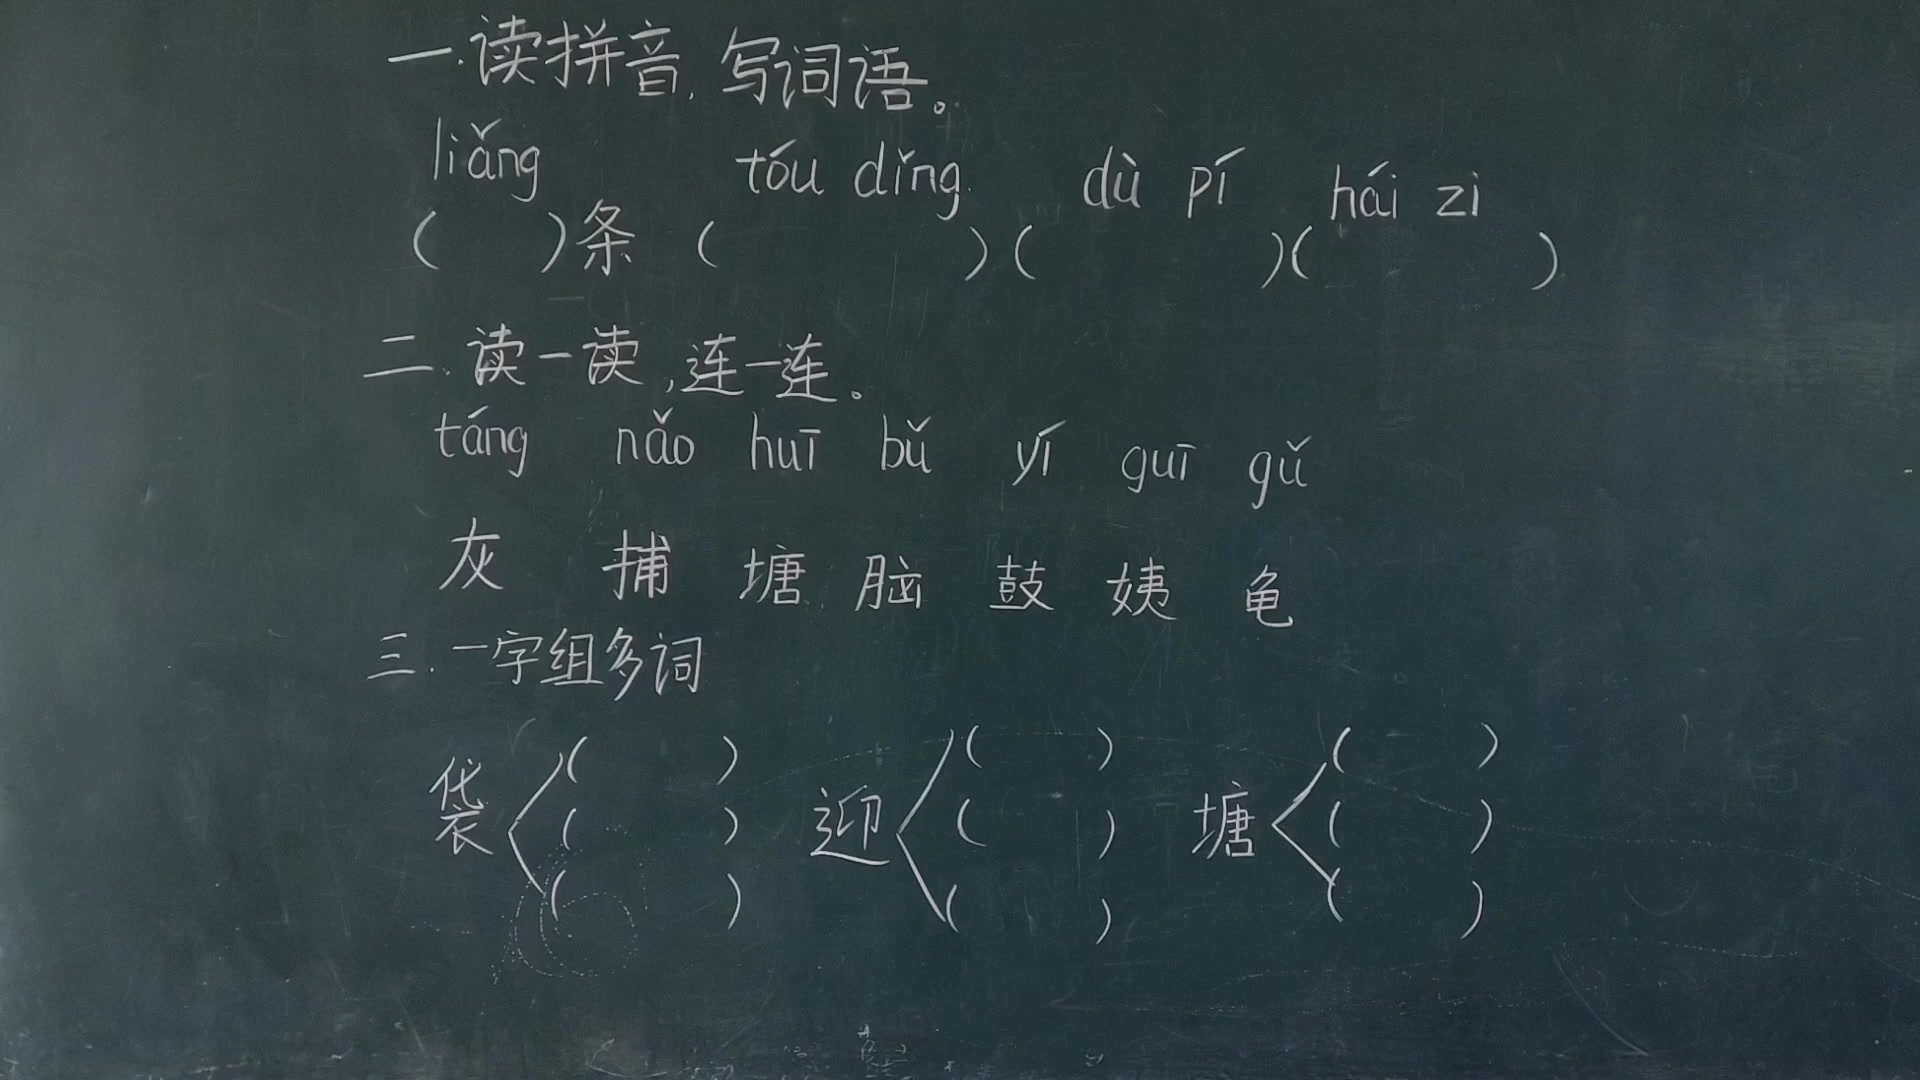 一.读拼音,写词语。
liǎng tóu dǐng dù pí hái zi
( )条 ( )( )( )
二.读一读,连一连。
táng nǎo huī bǔ yí guī gǔ
灰 捕 塘 脑 鼓 姨 龟
三.一字组多词
( ) ( ) ( )
袋 ( ) 迎 ( ) 塘 ( )
( ) ( ) ( )